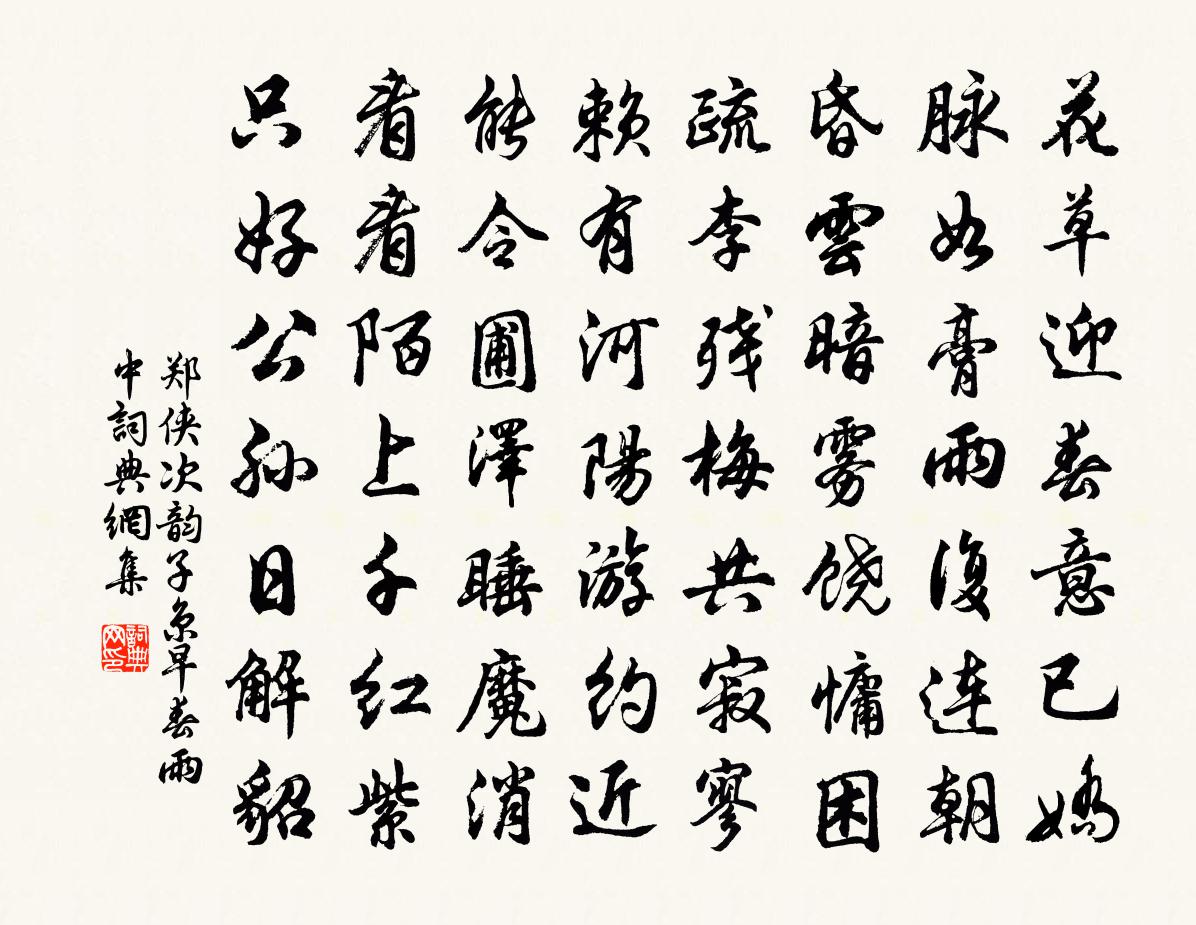 花草迎春意已嬌
脉如膏雨復连朝
昏雲暗雾饶慵困
疏李残梅共寂寥
赖有河陽游约近
能令圃澤睡魔消
看看陌上千红紫
只好公孙日解貂
郑侠次韵子京早春雨
中詞典網集
詞典网印